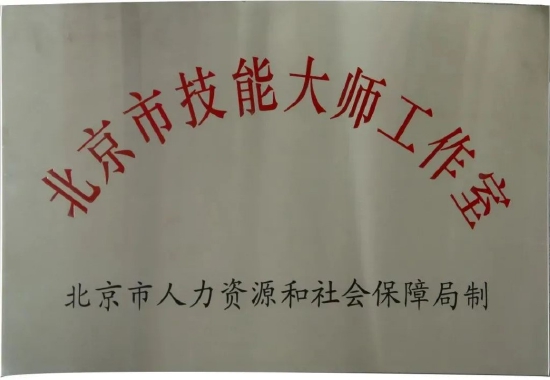 北京市技能大师工作室
北京市人力资源和社会保障局制